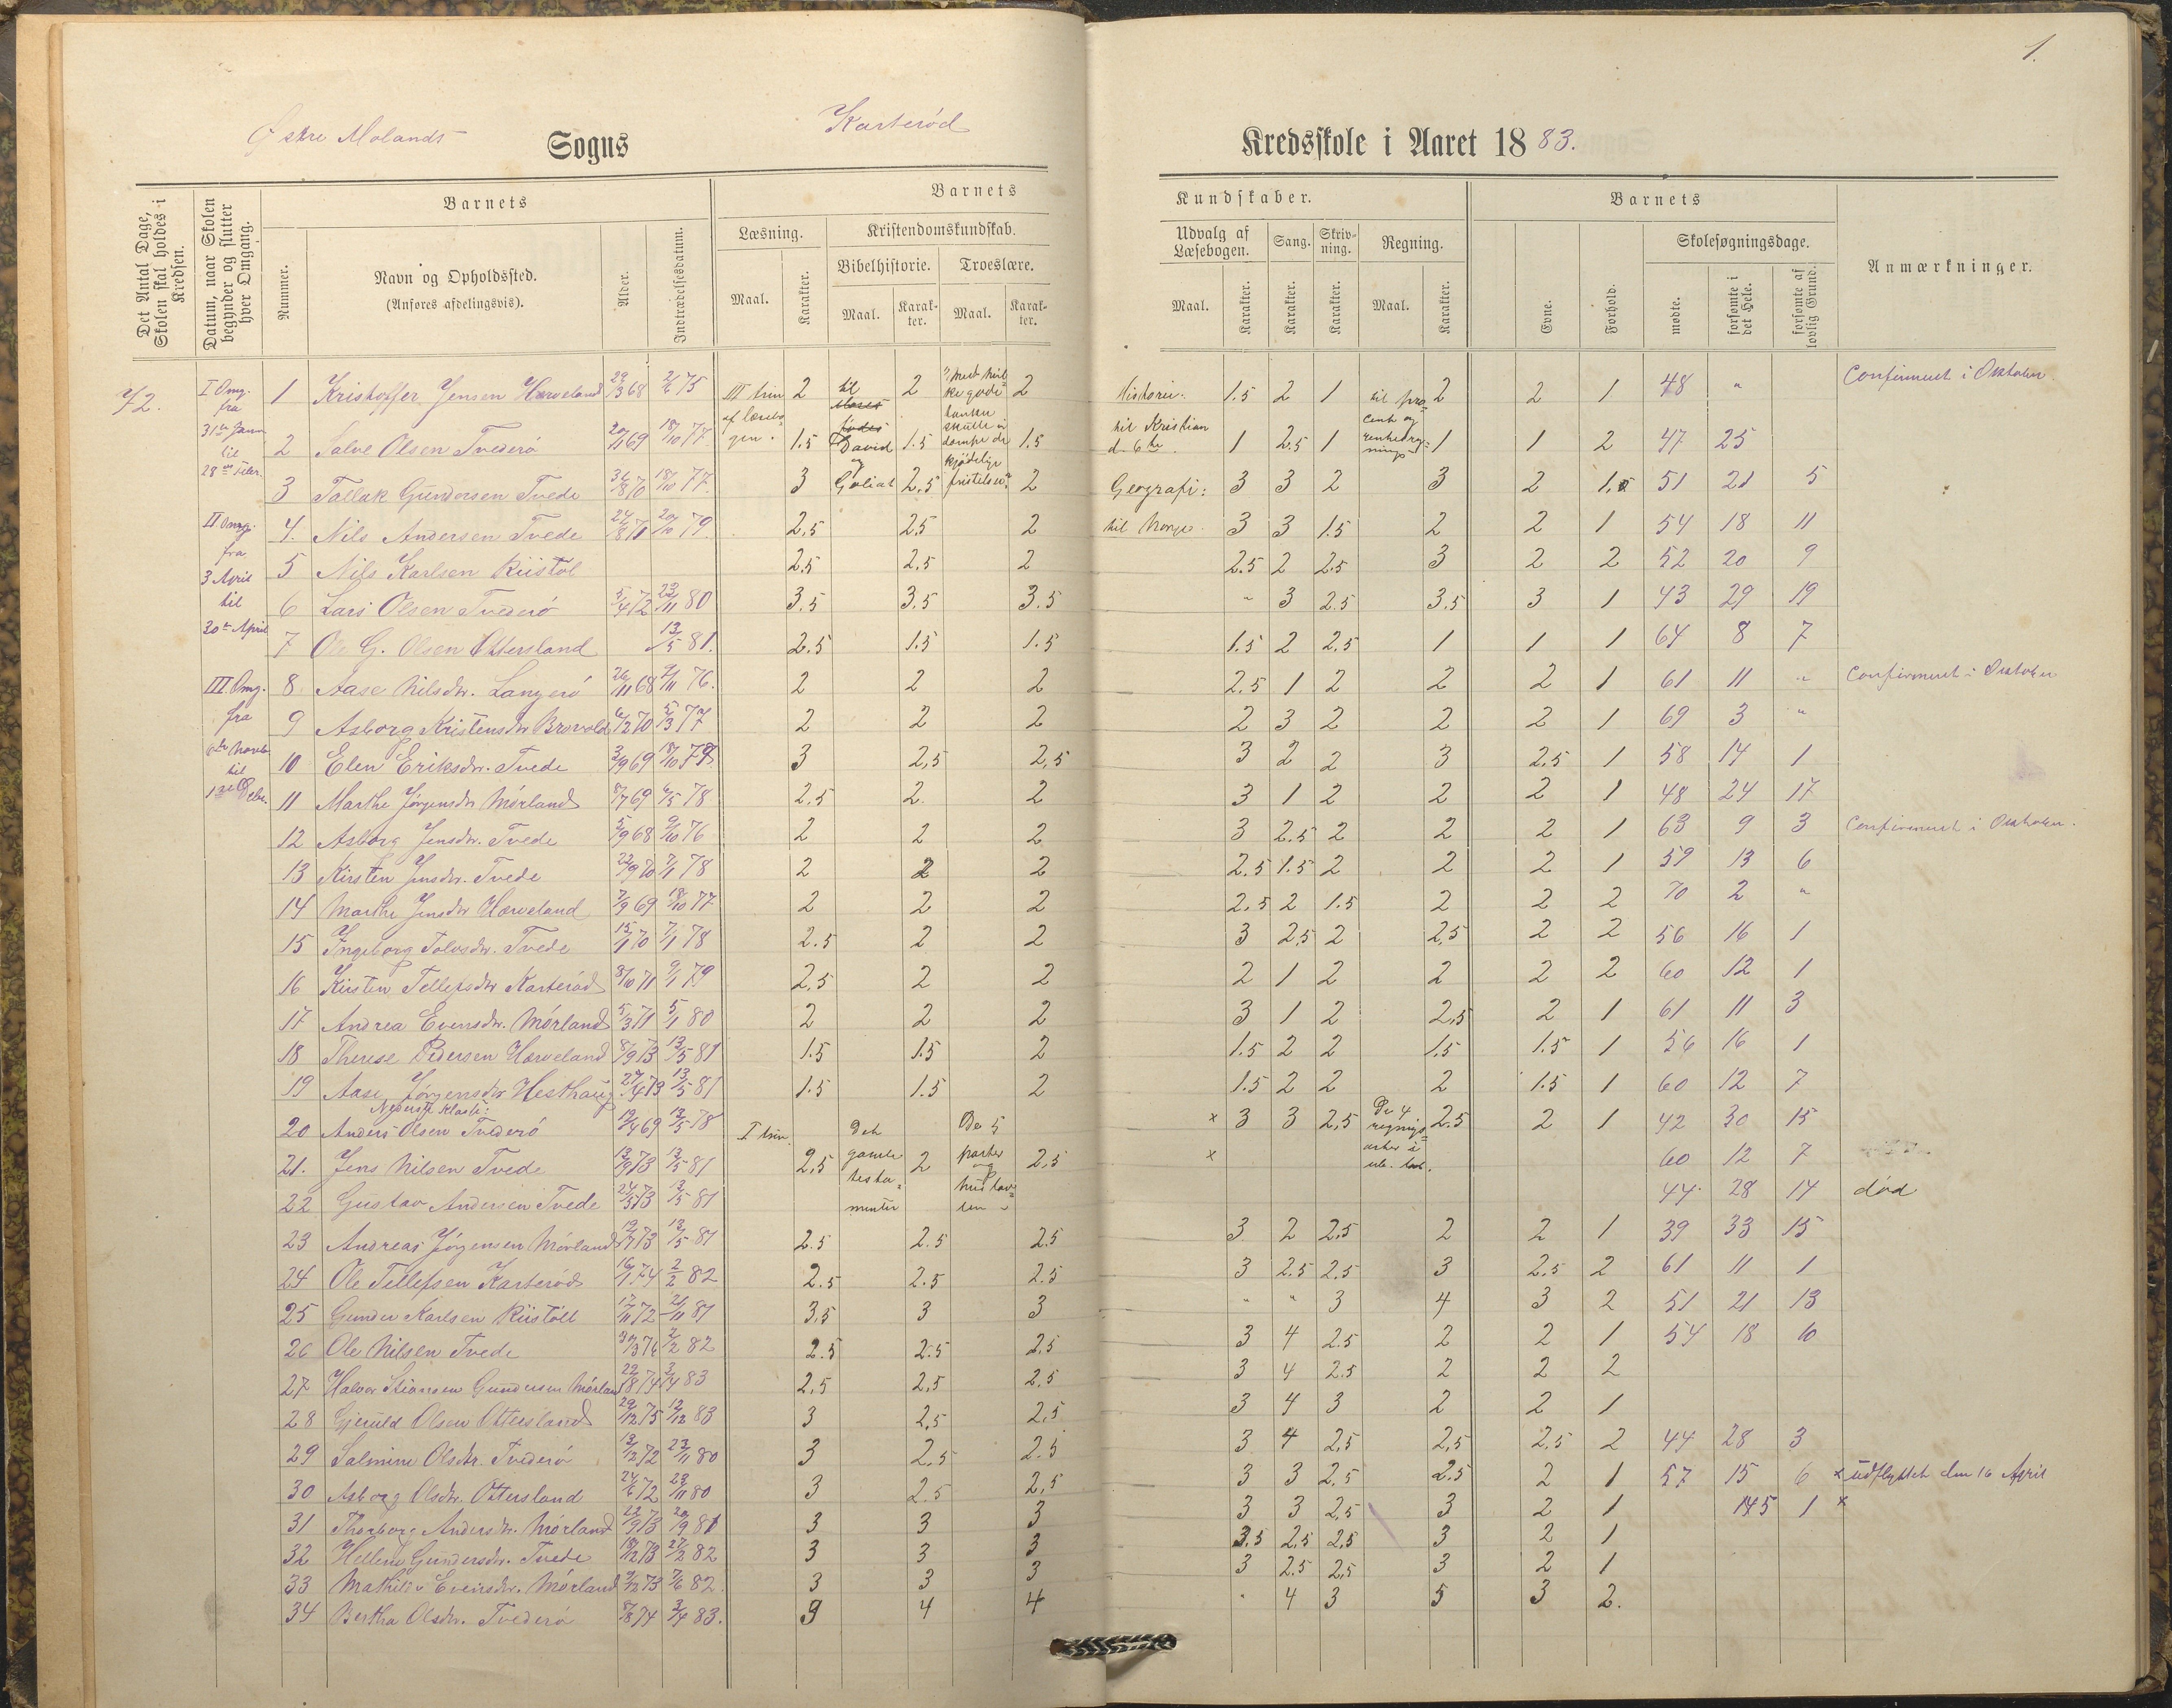 1.
Østre Molands Sogns Karterød Kredsskole i Aaret 1883.
Det Antal Dage, Skolen skal holdes i Kredsen.
Datum, naar Skolen begynder og slutter hver Omgang.
Barnets
Nummer.
Navn og Opholdssted.
(Anføres afdelingsvis).
Alder.
Indtrædelsesdatum.
Barnets Kundskaber.
Læsning.
Maal.
Karakter.
Kristendomskundskab.
Bibelhistorie.
Maal.
Karakter.
Troeslære.
Maal.
Karakter.
Udvalg af Læsebogen.
Maal.
Karakter.
Sang.
Karakter.
Skrivning.
Karakter.
Regning.
Maal.
Karakter.
Barnets
Evne.
Forhold.
Skolesøgningsdage.
mødte.
forsømte i det Hele.
forsømte af lovlig Grund.
Anmærkninger.
72.
I Omg.
fra
31te Janu
til
28de Febr.
II Omg.
fra
3 April
til
30te April
III. Omg.
fra
til
III trin
af læsebo-
gen.
til
Moses
fødes
David
og
Goliat
Historie:
til Kristian
d. 6te
Geografi:
til Norge.
til pro-
cent og
1 Kristoffer Jensen Hærveland 29/3 68 2/6 75 2 2 2 1.5 2 1 2 2 1 48 " Confirmert i Oktober
2 Salve Olsen Tvederø 20/1 69 18/10 77. 1.5 1.5 1.5 1 2.5 1 1 1 2 47 25
3 Tallak Gundersen Tvede 18/10 77. 3 2,5 2 3 3 2 3 2 1,5 51 21 5
4. Nils Andersen Tvede 24/8 71 20/10 79. 2,5 2,5 2 3 3 1.5 2 2 1 54 18 11
5 Nils Karlsen Riistøl 2.5 2,5 2 2.5 2 2.5 3 2 2 52 20 9
6 Lars Olsen Tvederø 5/4 72 23/11 80 3.5 3.5 3.5 " 3 2.5 3,5 3 1 43 29 19
7 Ole G. Olsen Ottersland 13/5 81. 2.5 1.5 1.5 1.5 2 2.5 1 1 1 64 8 7
8 Aase Nilsdtr. Langerø 26/11 68 76. 2 2 2 2.5 1 2 2 2 1 61 11 " Confirmert i Oktober
9 Asborg Kristensdtr Brovold 6/2 70 5/3 77 2 2 2 2 3 2 2 2 1 69 3 "
10 Elen Eriksdtr. Tvede 3/9 69 18/10 3 2,5 2,5 3 2 2 3 2.5 1 58 14 1
11 Marthe Jørgensdtr Mørland 8/7 69 6/5 78 2.5 2. 2 3 1 2 2 2 1 48 24 17
12 Asborg Jensdtr. Tvede 5/9 68 9/10 76 2 2 2 3 2.5 2 2 2 1 63 9 3 Confirmert i Oktober.
13 Kirsten Jensdtr. Tvede 22/9 70 7/1 78 2 2 2 2.5 1.5 2 2 2 1 59 13 6
14 Marthe Jensdtr Hærveland 7/9 69 18/10 77 2 2 2 2.5 2 1.5 2 2 2 70 2 "
15 Ingeborg Tolvsdtr. Tvede 15/1 70 7/1 78 2.5 2 2 3 2.5 2 2.5 2 2 56 16 1
16 Kirsten Tellefsdtr Karterød 8/10 71 9/1 79 2,5 2 2 2 1 2 2 2 2 60 12 1
17 Andrea Evensdtr. Mørland 5/3 71 5/1 80 2 2 2 3 1 2 2,5 2 1 61 11 3
18 Therese Pedersen Hærveland 8/9 73 13/5 81 1.5 1.5 2 1.5 2 2 1.5 1.5 1 56 16 1
19 Aase Jørgensdtr Hesthaug 27/4 73 13/5 81 1.5 1.5 2 1.5 2 2 2 1.5 1 60 12 7
Nederste Klasse:
I trin.
det
gamle
testa-
menter
De 5
parter
og
hustav-
len
De 4
regnings
arter i
20 Anders Olsen Tvederø 19/4 69 13/5 78 x 3 3 2,5 2.5 2 1 42 30 15
21. Jens Nilsen Tvede 13/9 73 13/5 81 2,5 2 2,5 x 60 12 7
22 Gustav Andersen Tvede 24/5 73 13/5 81 44 28 14 død
23 Andreas Jørgensen Mørland 19/7 73 13/5 81 2.5 2.5 2.5 3 2 2,5 2 2 1 39 33 15
24 Ole Tellefsen Karterød 16/1 74 2/2 82 2.5 2.5 2.5 3 2.5 2.5 3 2.5 2 61 11 1
25 Gunder Karlsen Riistøll 17/11 72 21/11 81 3,5 3 3 " " 3 4 3 2 51 21 13
26 Ole Nilsen Tvede 2/2 82 2.5 2.5 2,5 3 4 2.5 2 2 1 54 18 10
27 Halvor Stiansen Gundersen Mørland 22/8 74 3/4 83 2,5 2,5 2,5 3 4 2.5 2 2 2
28 Gjeruld Olsen Ottersland 29/12 75 12/12 83 3 2,5 2,5 3 4 3 2 2 1
29 Salmine Olsdtr. Tvederø 13/12 72 23/11 80 3 2.5 2.5 3 4 2,5 2,5 2.5 2 44 28 3
30 Asborg Olsdtr. Ottersland 24/6 72 23/11 80 3 2.5 2,5 3 3 2.5 2.5 2 1 57 15 6 x udflyttet den 16 April
31 Thorborg Andersdtr. Mørland 22/9 73 20/9 81 3 3 3 3 3 2,5 3 2 1 1 x
32 Hellene Gundersdtr. Tvede 18/12 73 27/2 82 3 3 3 3.5 2,5 2,5 3 2 1
33 Mathilde Evensdtr. Mørland 9/12 73 7/6 82. 3 3 3 3 2.5 2,5 3 2 1
34 Bertha Olsdtr. Tvederø 8/8 74 3/4 83. 4 4 4 3 5 3 2.